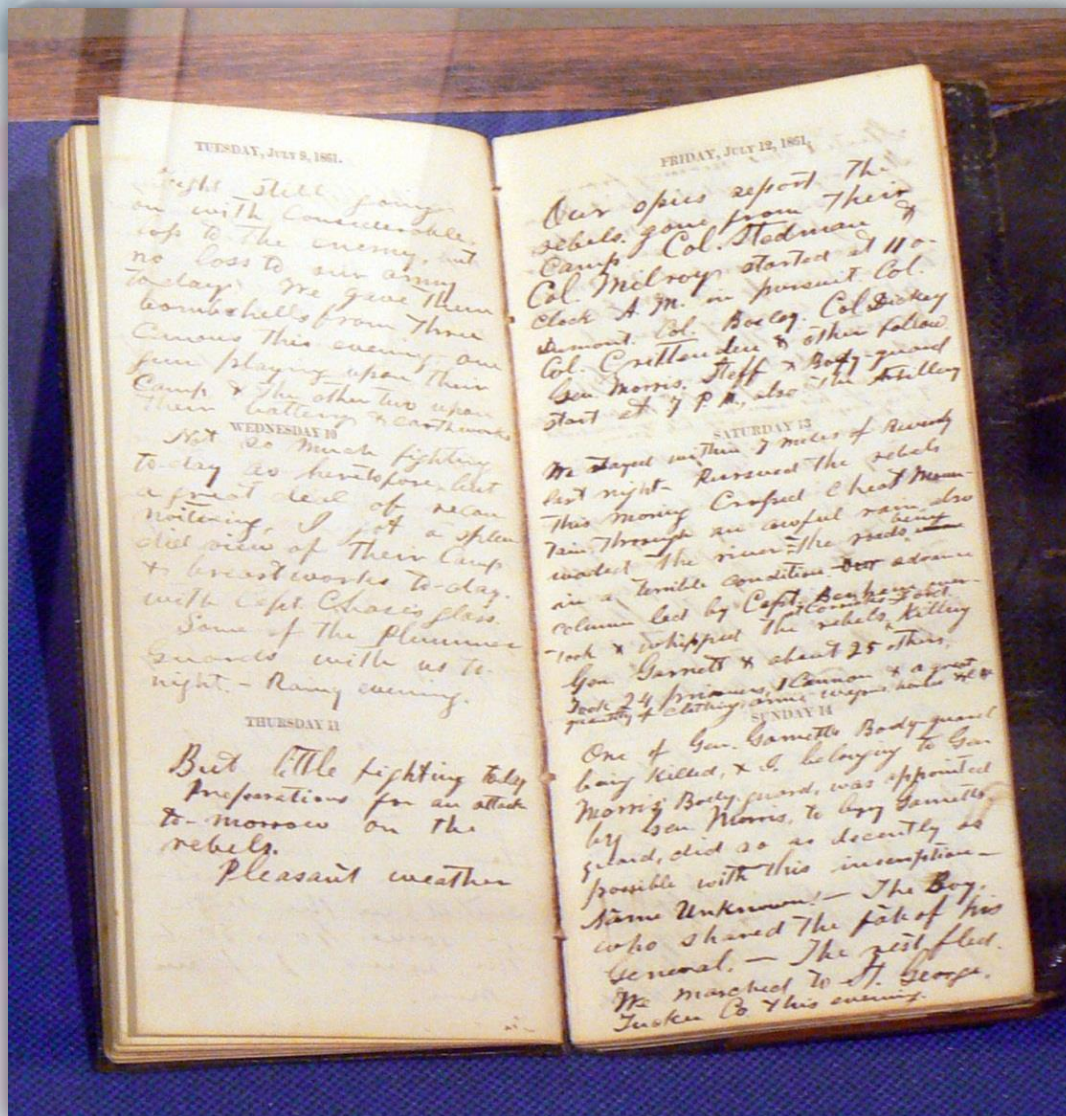 TUESDAY, JULY 9, 1861.
Fight still going
on with Considerable
loss to the enemy, but
no loss to our army
to-day. We gave them
bombshells from three
Canons this evening, one
gun playing upon their
Camp & the other two upon
their battery & earthworks
WEDNESDAY 10
Not so much fighting
to-day as heretofore, but
a great deal of recon
noitering, I got a splen
did view of their Camp
& breastworks to-day.
with Capt. Chase's glass.
Some of the Plummer
Guards with us to-
night. - Rainy evening.
THURSDAY 11
But little fighting today
Preparations for an attack
to-morrow on the
rebels.
Pleasant weather
FRIDAY, JULY 12, 1861.
Our spies report the
rebels gone from their
Camp Col. Stedman &
Col. Milroy started at 11 o-
clock A.M. in pursuit Col.
Dumont Col. Col Dickey
Col. Crittenden & other follow.
Gen. Morris, Staff & Body-guard
start at 7 P.M., also the Artillery
SATURDAY 13
We stayed within 7 miles of Beverly
last night - Pursued the rebels
this morning Crossed Cheat Moun-
tain, through an awful rain, also
waded the river - the roads being
in a terrible condition - Our advance
column led by Capt. Benham over-
took & whipped the rebels, Killing
Gen. Garnett & about 25 others,
Took 24 prisoners, 1 Cannon & a great
quantity of clothing, arms wagons horses
SUNDAY 14
One of Gen. Garnett's Body-guard
being killed, & I, belonging to Gen
Morris' Body-guard, was appointed
by Gen Morris, to bury Garnett's
guard, did so as decently as
possible with this inscription -
Name Unknown. - The Boy,
who shared the fate of his
General. - The rest fled.
We marched to St. George,
Tucker Co this evening.